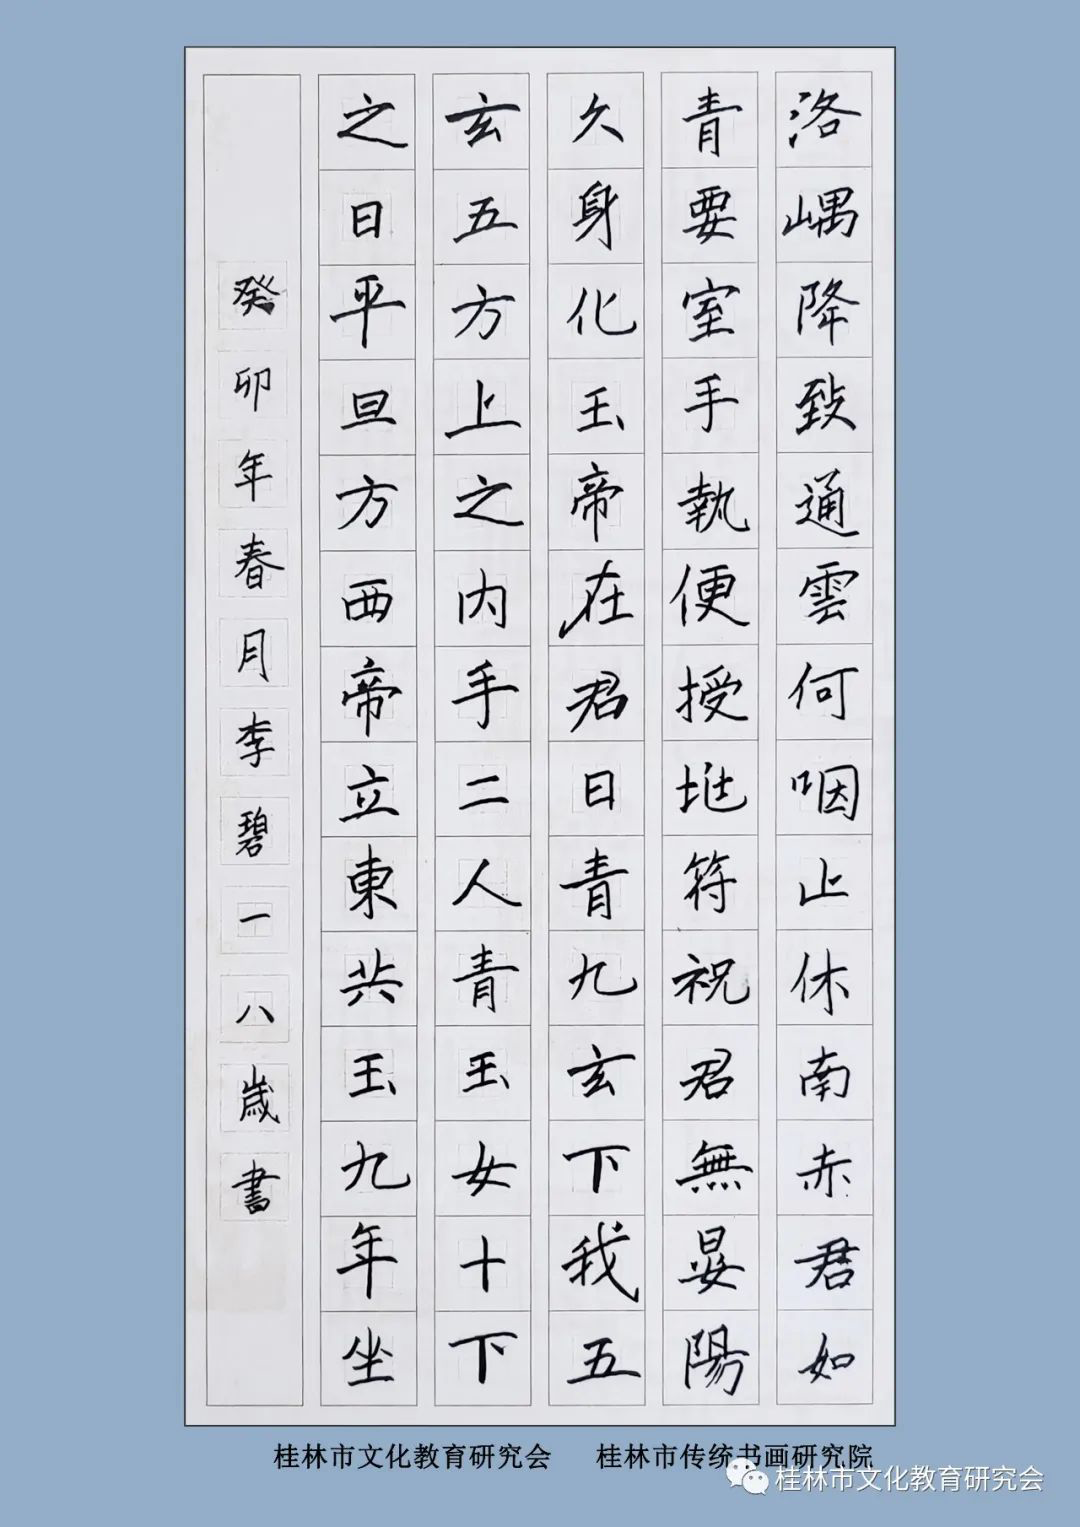 洛嵎降致通雲何咽止休南赤君如
青要室手執便授地符祝君無晏陽
久身化玉帝在君日青九玄下我五
玄五方上之内手二人青玉女十下
之日平旦方西帝立東共玉九年坐
癸卯年春月李碧一八歲書
桂林市文化教育研究会 桂林市传统书画研究院
桂林市文化教育研究会